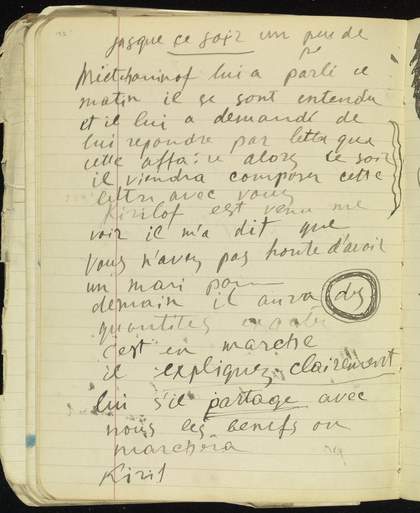 jusque ce soir un peu de
Mietchaninof lui a parlé ce
matin il se sont entendu
et il lui a demandé de
lui repondre par lettre que
cette affaire alors ce soir
il viendra composer cette
lettre avec vous
Kirilof est venu me
voir il m'a dit que
vous n'avez pas honte d'avoir
un mari
demain il aura des
quantites
c'est en marche
il expliquez clairement
lui s'il partage avec
nous les benefs on
marchera
Kiril